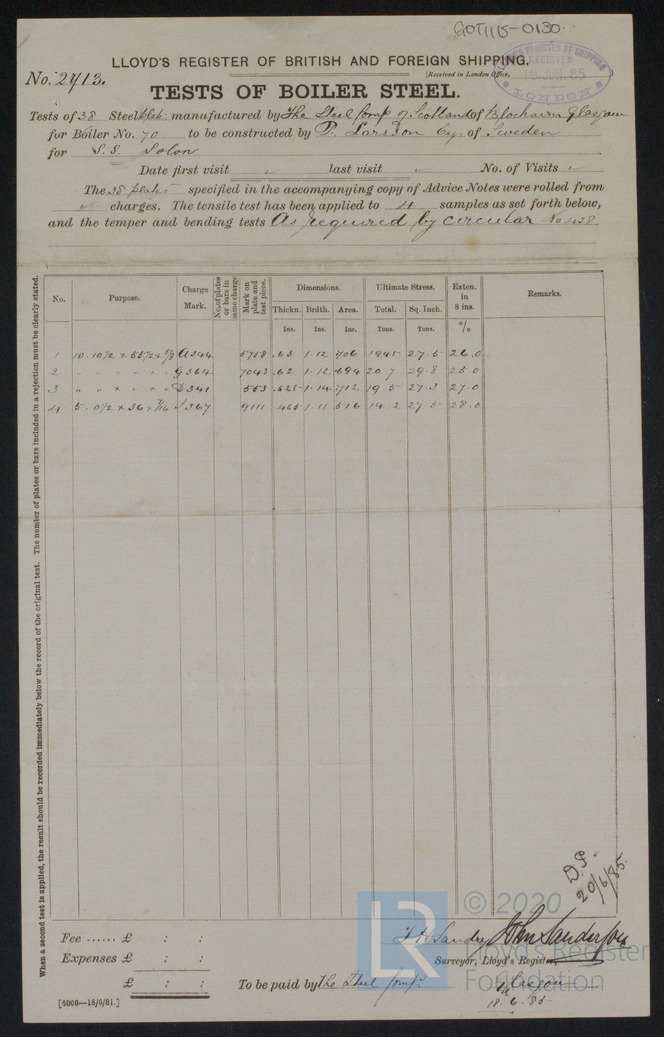 GOT1115-0130
LLOYD'S REGISTER OF BRITISH AND FOREIGN SHIPPING.
LLOYD'S REGISTER OF SHIPPING RECEIVED 85 LONDON
No. 2413.
(Received in London Office,
TESTS OF BOILER STEEL.
Tests of 38 Steel plates manufactured by The Steel Comp of Scotland of Blochairn Glasgow
for Boiler No. 70 to be constructed by P. Larsson Cy. of Sweden
for S.S. Solon
Date first visit last visit No. of Visits
The 38 plates specified in the accompanying copy of Advice Notes were rolled from
charges. The tensile test has been applied to 4 samples as set forth below,
and the temper and bending tests As required by circular No 438
No. Purpose. Charge Mark. No. of plates or bars in same charge Mark on plate and test piece. Dimensions. Ultimate Stress. Exten. in 8 ins. Remarks.
Thickn. Brdth. Area. Total. Sq. Inch.
Ins. Ins. Ins. Tons. Tons. %
1 10. 10 1/2 x 55 1/2 x 5/8 A344 5758 .63 1.12 .706 19.45 27.5 26.0
2 " " " x " x " G364 7043 .62 1.12 .694 20.7 29.8 25.0
3 " " x " x " D341 553 .625 1.14 .712 19.5 27.3 27.0
4 5. 0 1/2 x 36 x 7/16 367 9111 .465 1.11 .516 14.2 27.5 28.0
When a second test is applied, the result should be recorded immediately below the record of the original test. The number of plates or bars included in a rejection must be clearly stated.
D.P.
20/6/85.
© 2020
Lloyd's Register
Foundation
LR
Fee ...... £ : :
Expenses £ : :
£ : :
John Sanderson
Surveyor, Lloyd's Register
To be paid by The Steel Comp.
Glasgow
18.6.85
[5000—18/6/81.]